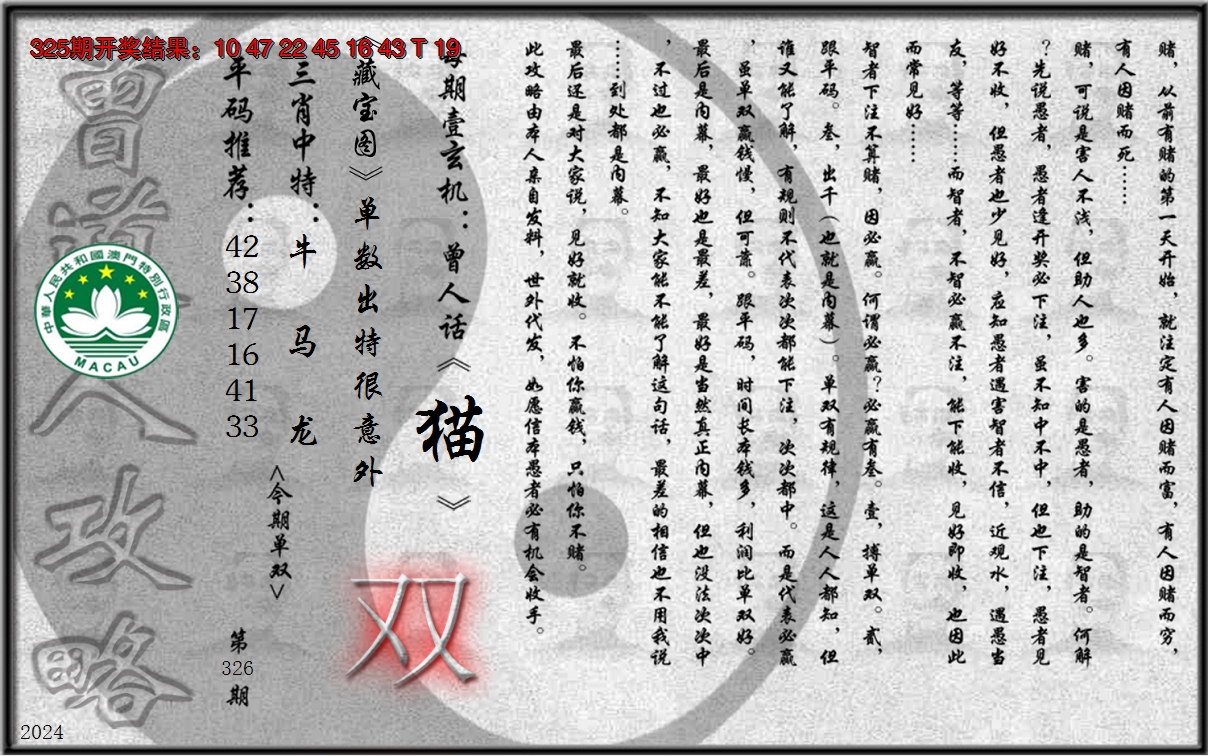 325期开奖结果：10 47 22 45 16 43 T 19
赌，从前有赌的第一天开始，就注定有人因赌而富，有人因赌而穷，
有人因赌而死……
赌，可说是害人不浅，但助人也多。害的是愚者，助的是智者。何解
？先说愚者，愚者逢开奖必下注，虽不知中不中，但也下注，愚者见
好不收，但愚者也少见好，应知愚者遇害智者不信，近观水，遇愚当
友，等等……而智者，不智必赢不注，能下能收，见好即收，也因此
而常见好……
智者下注不算赌，因必赢。何谓必赢？必赢有叁。壹，搏单双。贰，
跟平码。叁，出千（也就是内幕）。单双有规律，这是人人都知，但
谁又能了解，有规则不代表次次都能下注，次次都中。而是代表必赢
，虽单双赢钱慢，但可靠。跟平码，时间长本钱多，利润比单双好。
最后是内幕，最好也是最差，最好是当然真正内幕，但也没法次次中
，不过也必赢，不知大家能不能了解这句话，最差的相信也不用我说
……到处都是内幕。
最后还是对大家说，见好就收。不怕你赢钱，只怕你不赌。
此攻略由本人亲自发料，世外代发，如愿信本愚者必有机会收手。
每期壹玄机：曾人话《猫》
《藏宝图》单数出特很意外
双
三肖中特：牛 马 龙
<今期单双>
平码推荐：42 38 17 16 41 33
第326期
曾道人攻略
中華人民共和國澳門特別行政區
MACAU
2024